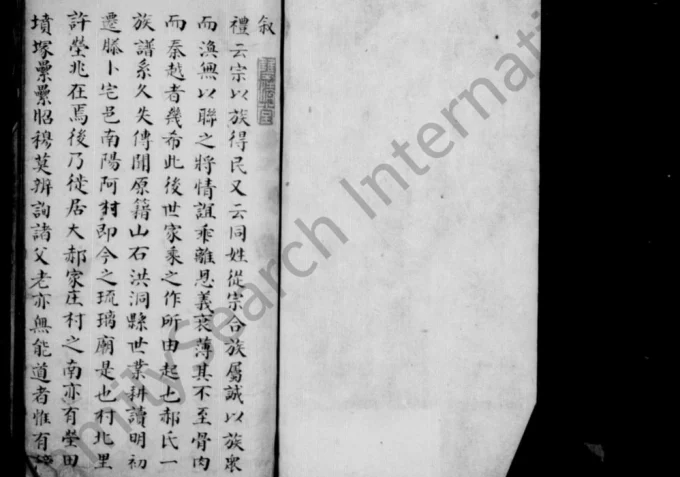 敘
禮云宗以族得民又云同姓從宗合族屬誠以族眾
而渙無以聯之將情誼乖離恩義衰薄其不至骨肉
而秦越者幾希此後世家乘之作所由起也郝氏一
族譜系久失傳聞原籍山石洪洞縣世業耕讀明初
遷滕卜宅邑南陽阿村即今之琉璃廟是也村北里
許塋兆在焉後乃徙居大郝家庄村之南亦有塋田
墳塚纍纍昭穆莫辨詢諸父老亦無能道者惟有
FamilySearch International